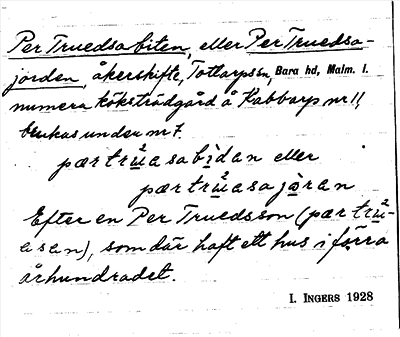 Per Truedsabiten, eller Per Truedsa-
jorden, åkerskifte, Tottarps sn, Bara hd, Malm. l.
numera köksträdgård å Kabbarp nr 11,
brukas under nr 7.
pær trṵ̀²asabìdan eller
pær trṵ̀²asajɑ̀ran
Efter en Per Truedsson (pær trṵ̀²-
asan), som där haft ett hus i förra
århundradet.
I. INGERS 1928